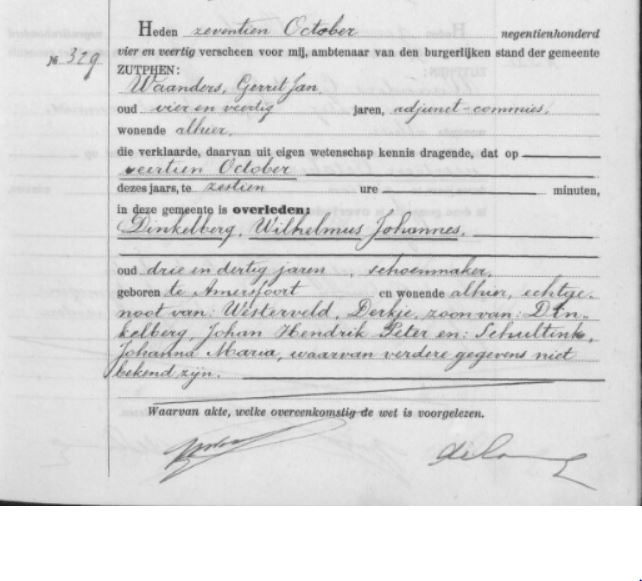 Heden zeventien October negentienhonderd
№ 329 vier en veertig verscheen voor mij, ambtenaar van den burgerlijken stand der gemeente
ZUTPHEN:
Waanders, Gerrit Jan
oud vier en veertig jaren, adjunct-commies,
wonende alhier,
die verklaarde, daarvan uit eigen wetenschap kennis dragende, dat op
veertien October
dezes jaars, te zestien ure minuten,
in deze gemeente is overleden:
Dinkelberg, Wilhelmus Johannes,
oud drie en dertig jaren, schoenmaker,
geboren te Amersfoort en wonende alhier, echtge-
noot van: Westerveld, Derkje, zoon van: Din-
kelberg, Johan Hendrik Peter en: Schultink,
Johanna Maria, waarvan verdere gegevens niet
bekend zijn.
Waarvan akte, welke overeenkomstig de wet is voorgelezen.